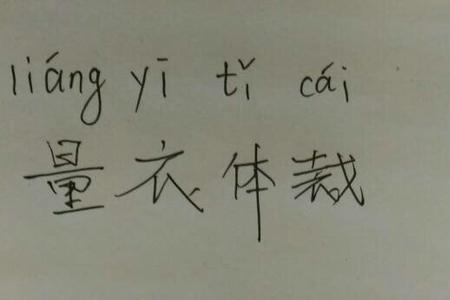 liáng yī tǐ cái
量衣体裁